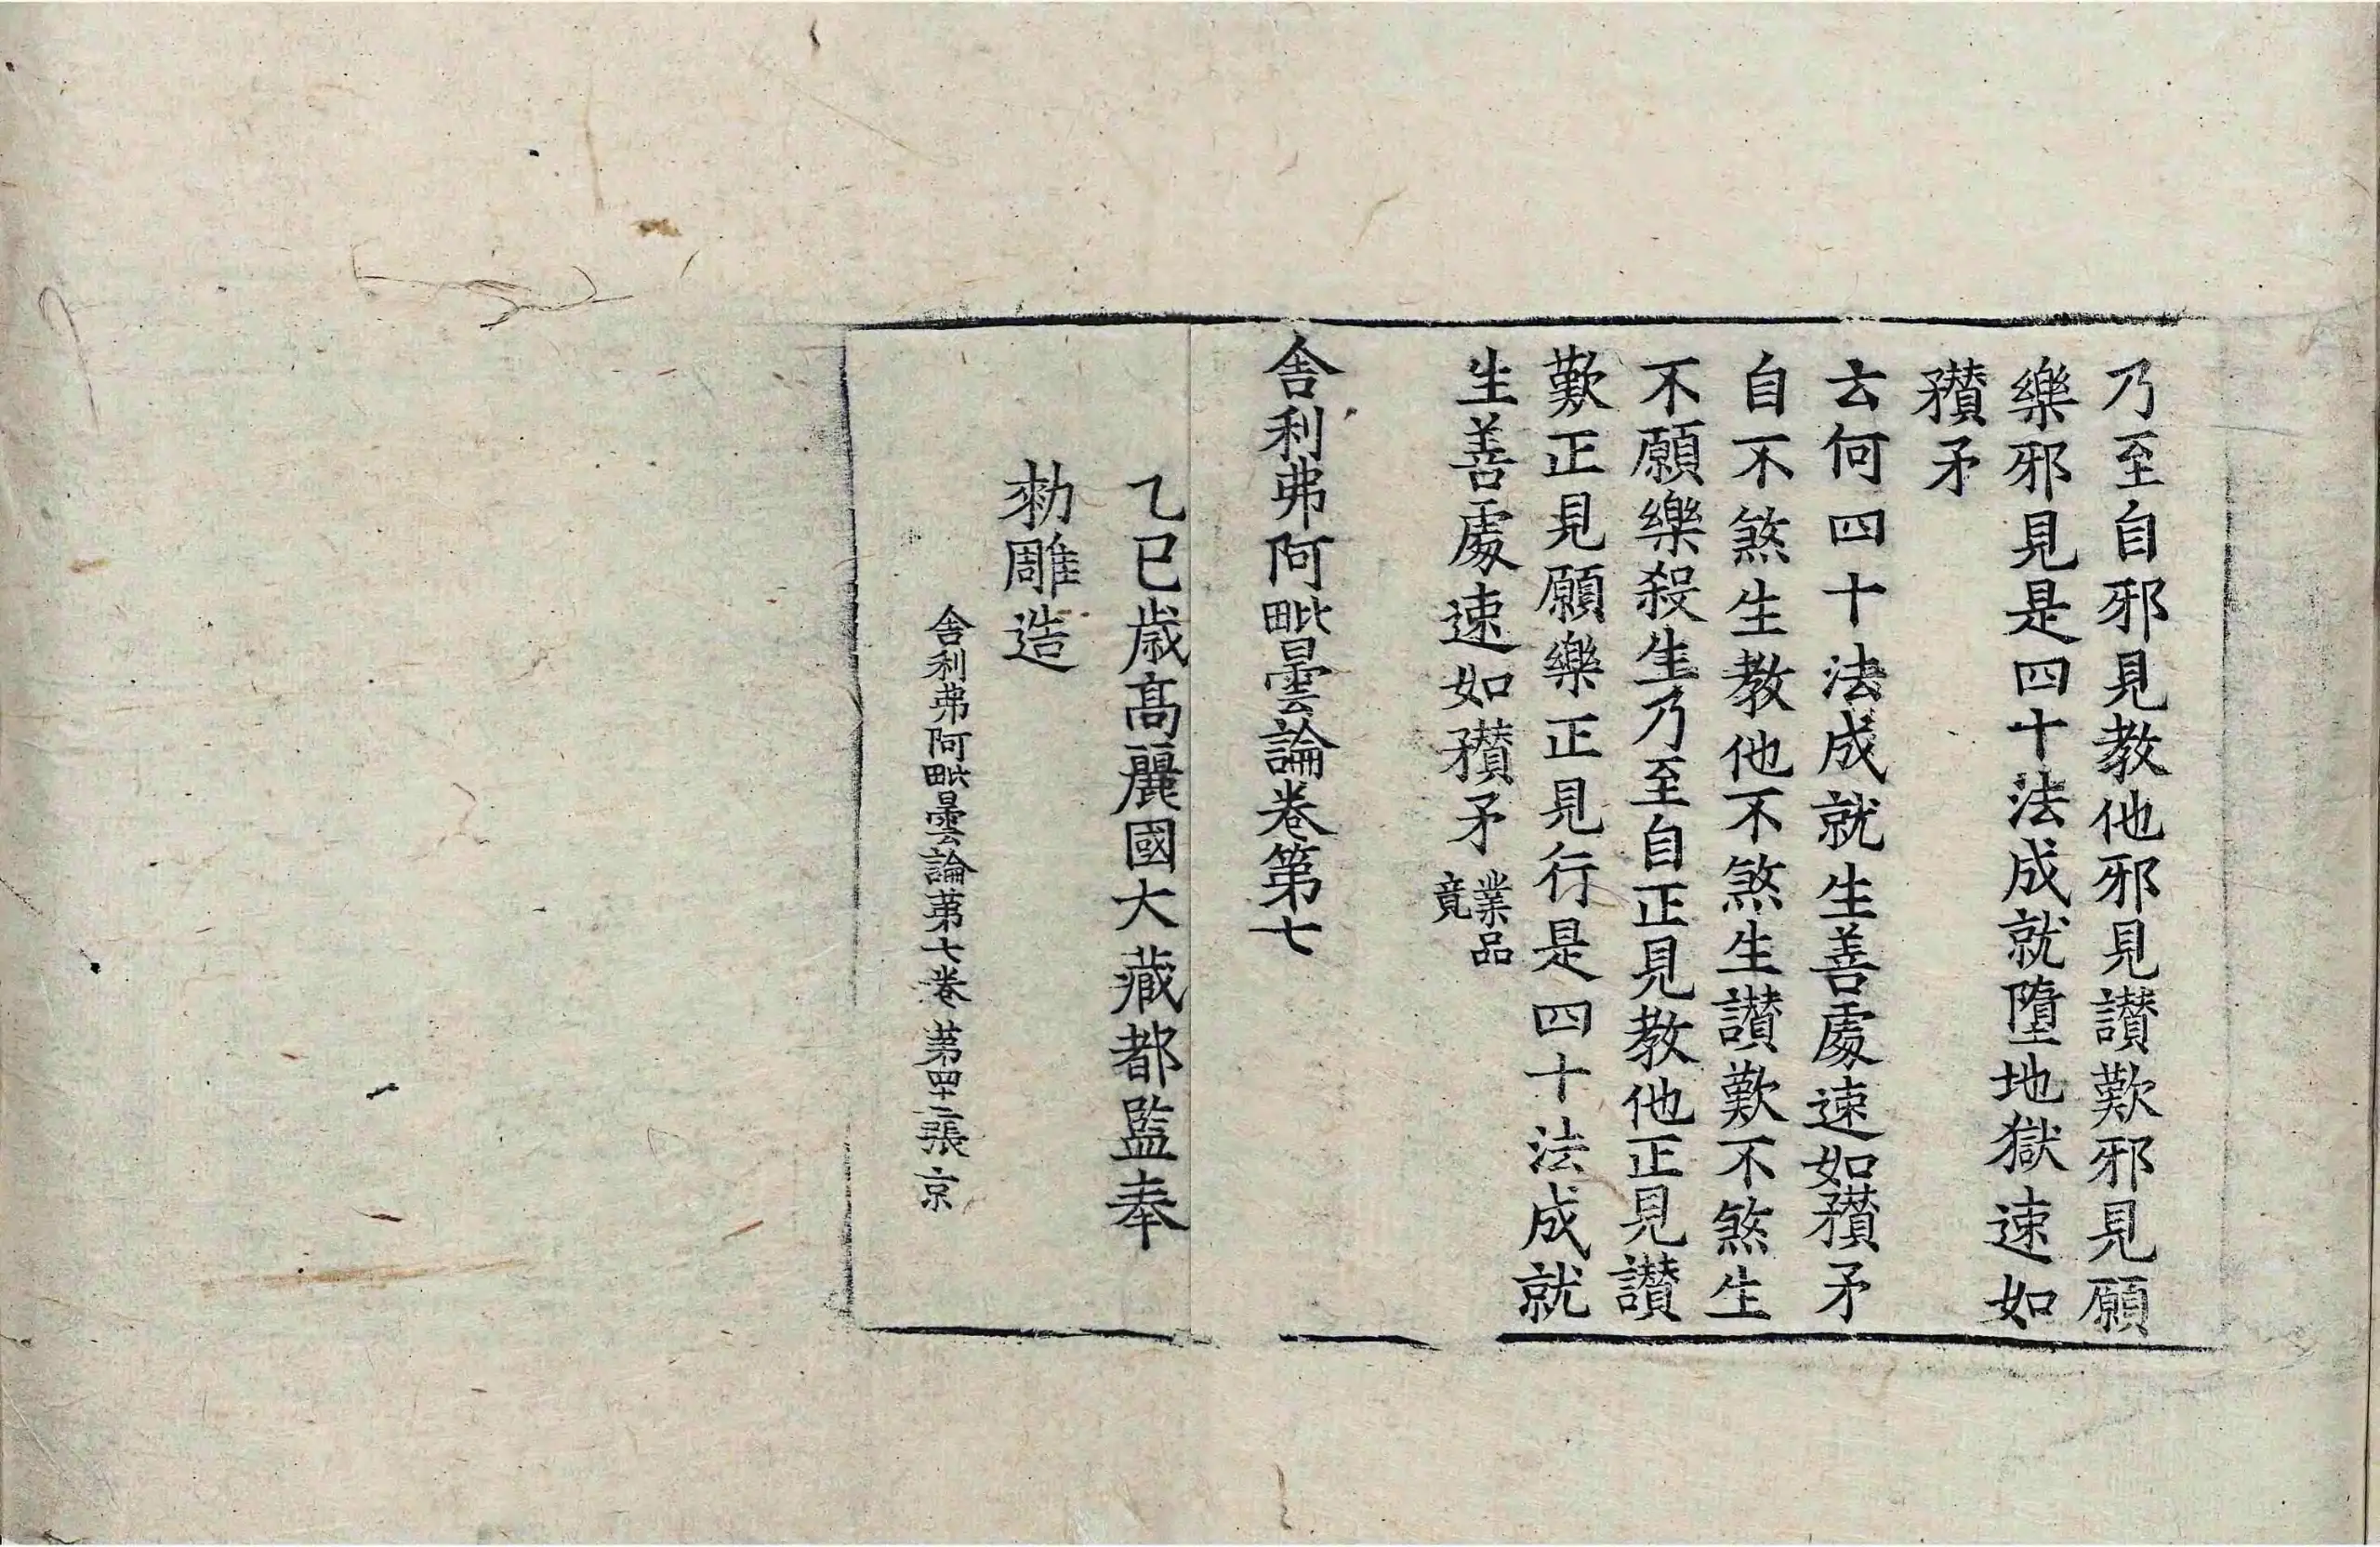 乃至自邪見教他邪見讃歎邪見願
樂邪見是四十法成就墮地獄速如
矟矛
云何四十法成就生善處速如矟矛
自不煞生教他不煞生讃歎不煞生
不願樂殺生乃至自正見教他正見讃
歎正見願樂正見行是四十法成就
生善處速如矟矛業品竟
舎利弗阿毗曇論卷第七
乙巳歳高麗國大藏都監奉
勑雕造
舎利弗阿毗曇論苐七卷 苐四十二張 京